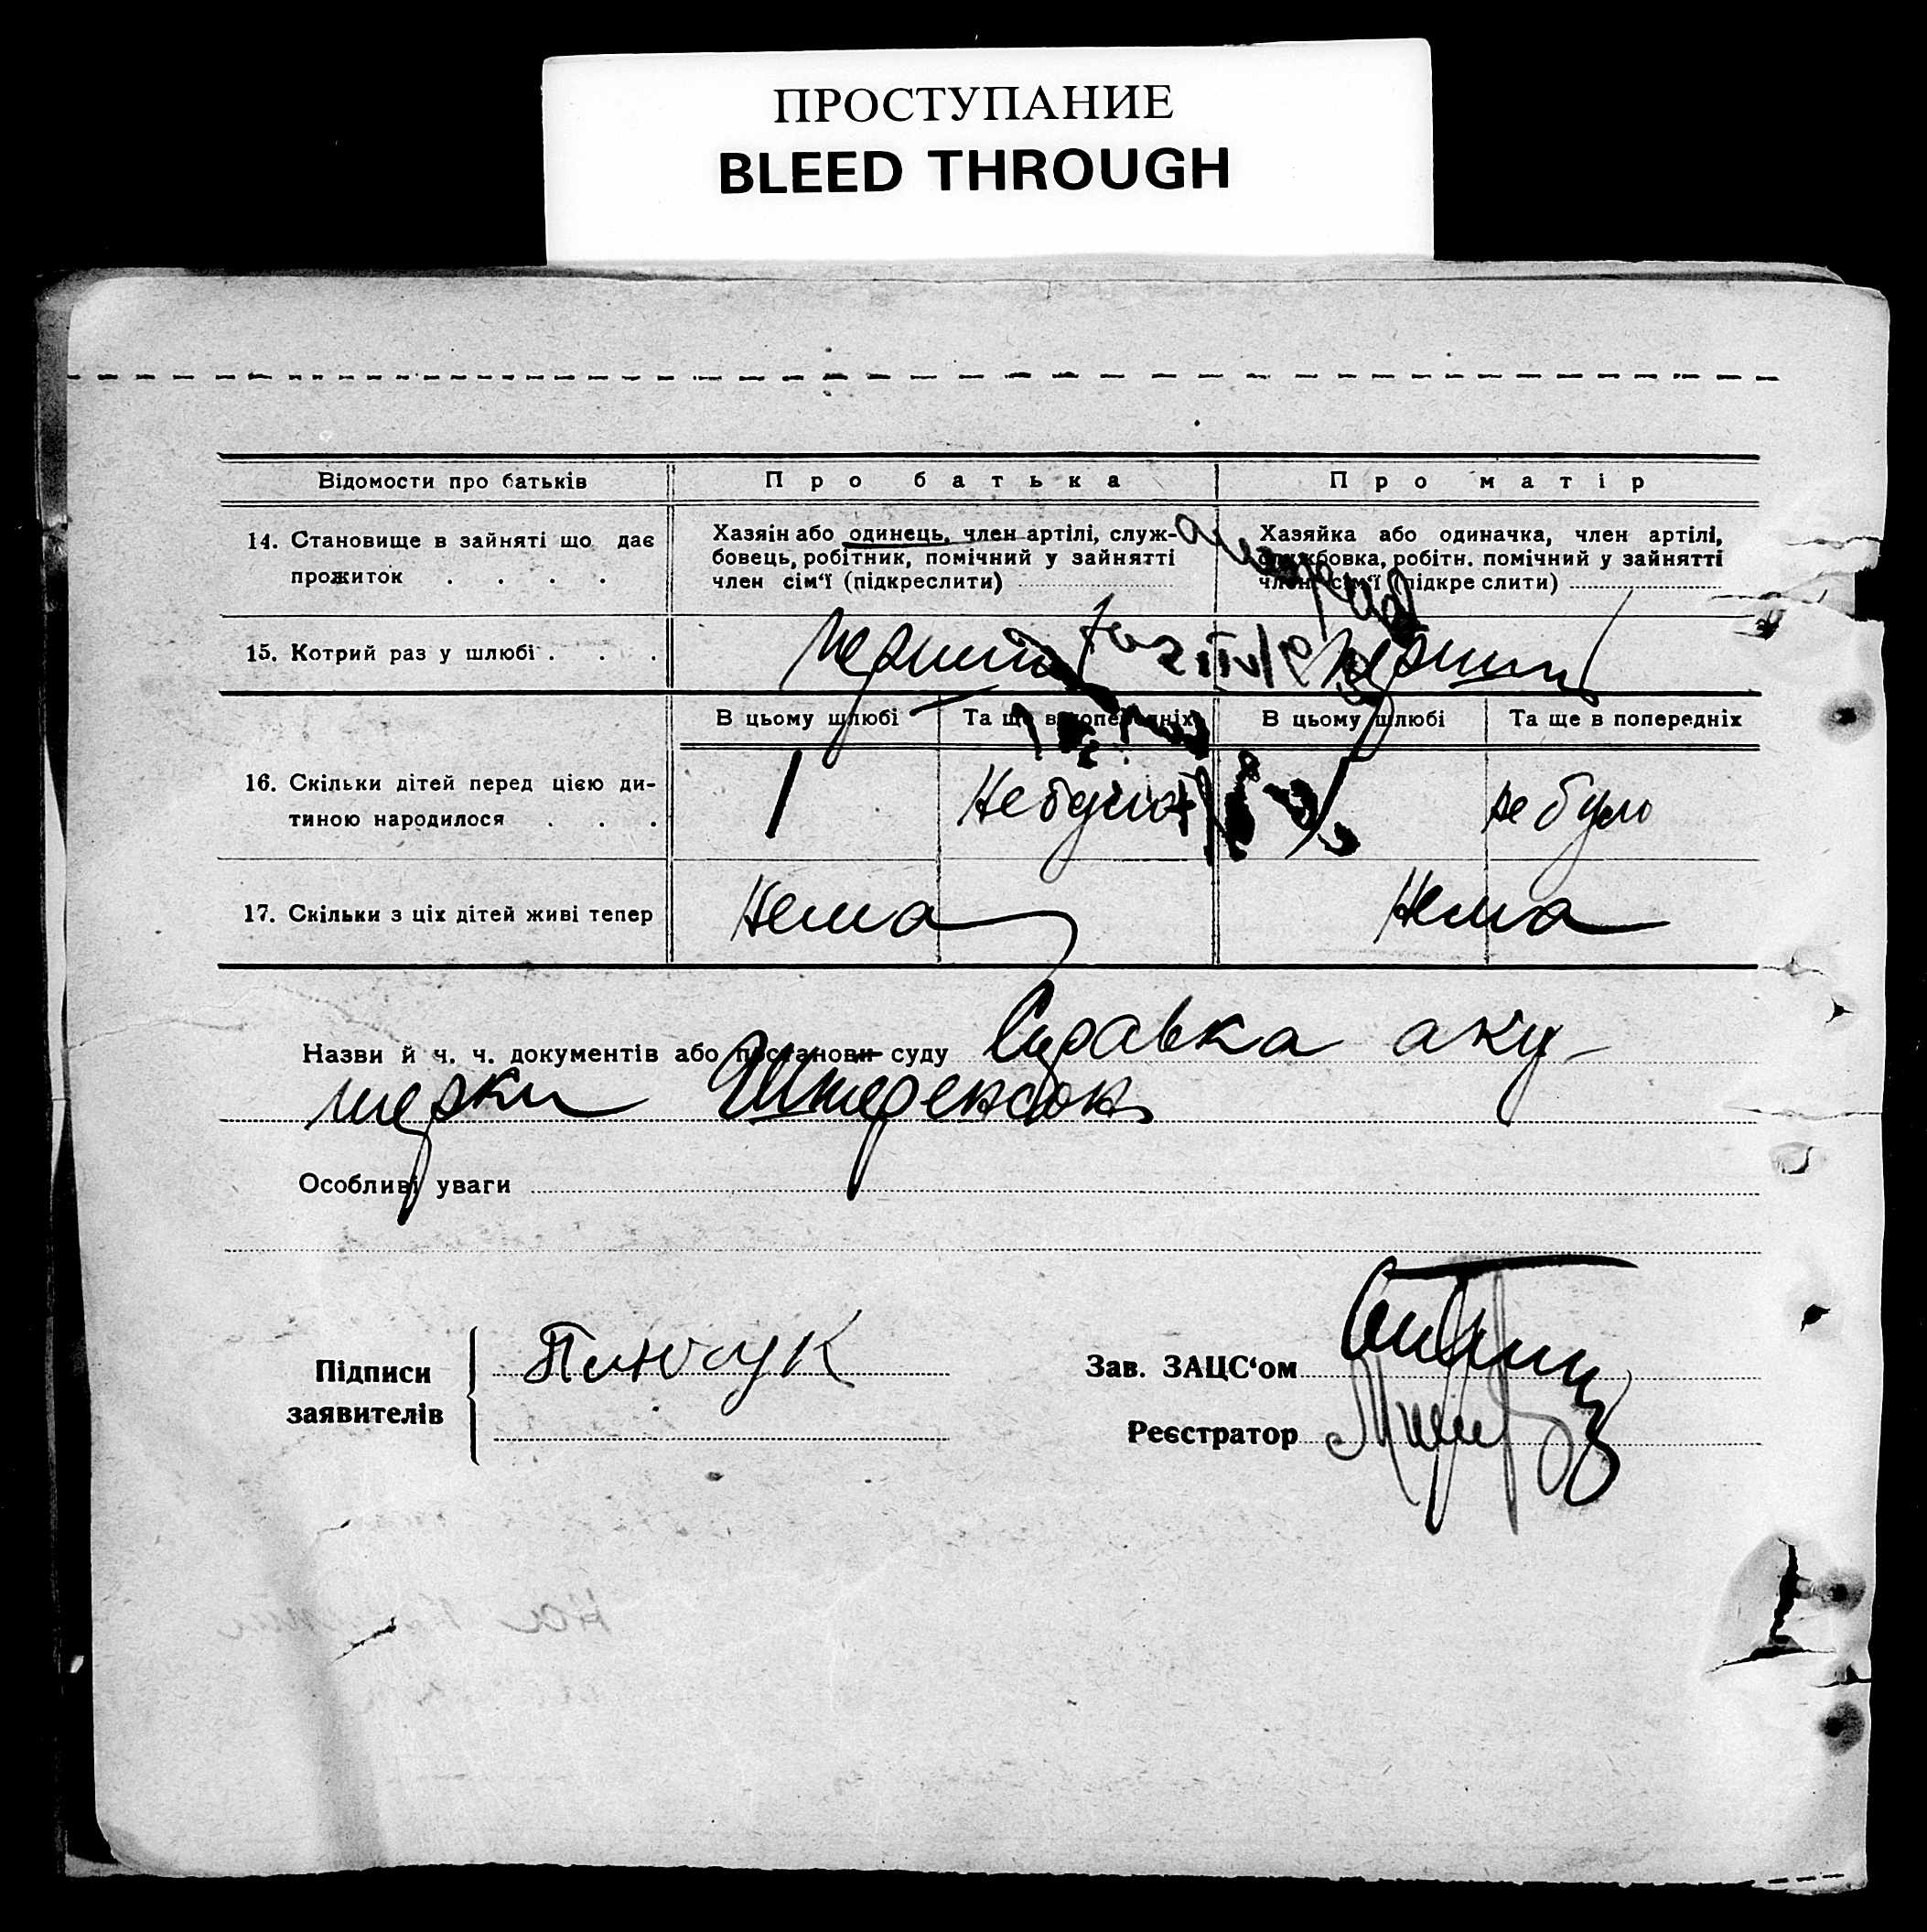 ПРОСТУПАНИЕ
BLEED THROUGH
Відомости про батьків
Про батька
Про матір
14. Становище в зайняті що дає
прожиток . . . .
Хазяін або одинець, член артілі, служ-
бовець, робітник, помічний у зайнятті
член сім‘ї (підкреслити)
Хазяйка або одиначка, член артілі,
службовка, робітн. помічний у зайнятті
член сім‘ї (підкре слити)
15. Котрий раз у шлюбі . . .
перший
перший
В цьому шлюбі
Та ще в попередніх
В цьому шлюбі
Та ще в попередніх
16. Скільки дітей перед цією ди-
тиною народилося . . .
1
Не було
не було
17. Скільки з ціх дітей живі тепер
Нема
Нема
Назви й ч. ч. документів або постанови суду Справка аку-
шерки
Особливі уваги
Підписи
заявителів
Пинчук
Зав. ЗАЦС‘ом
Реєстратор